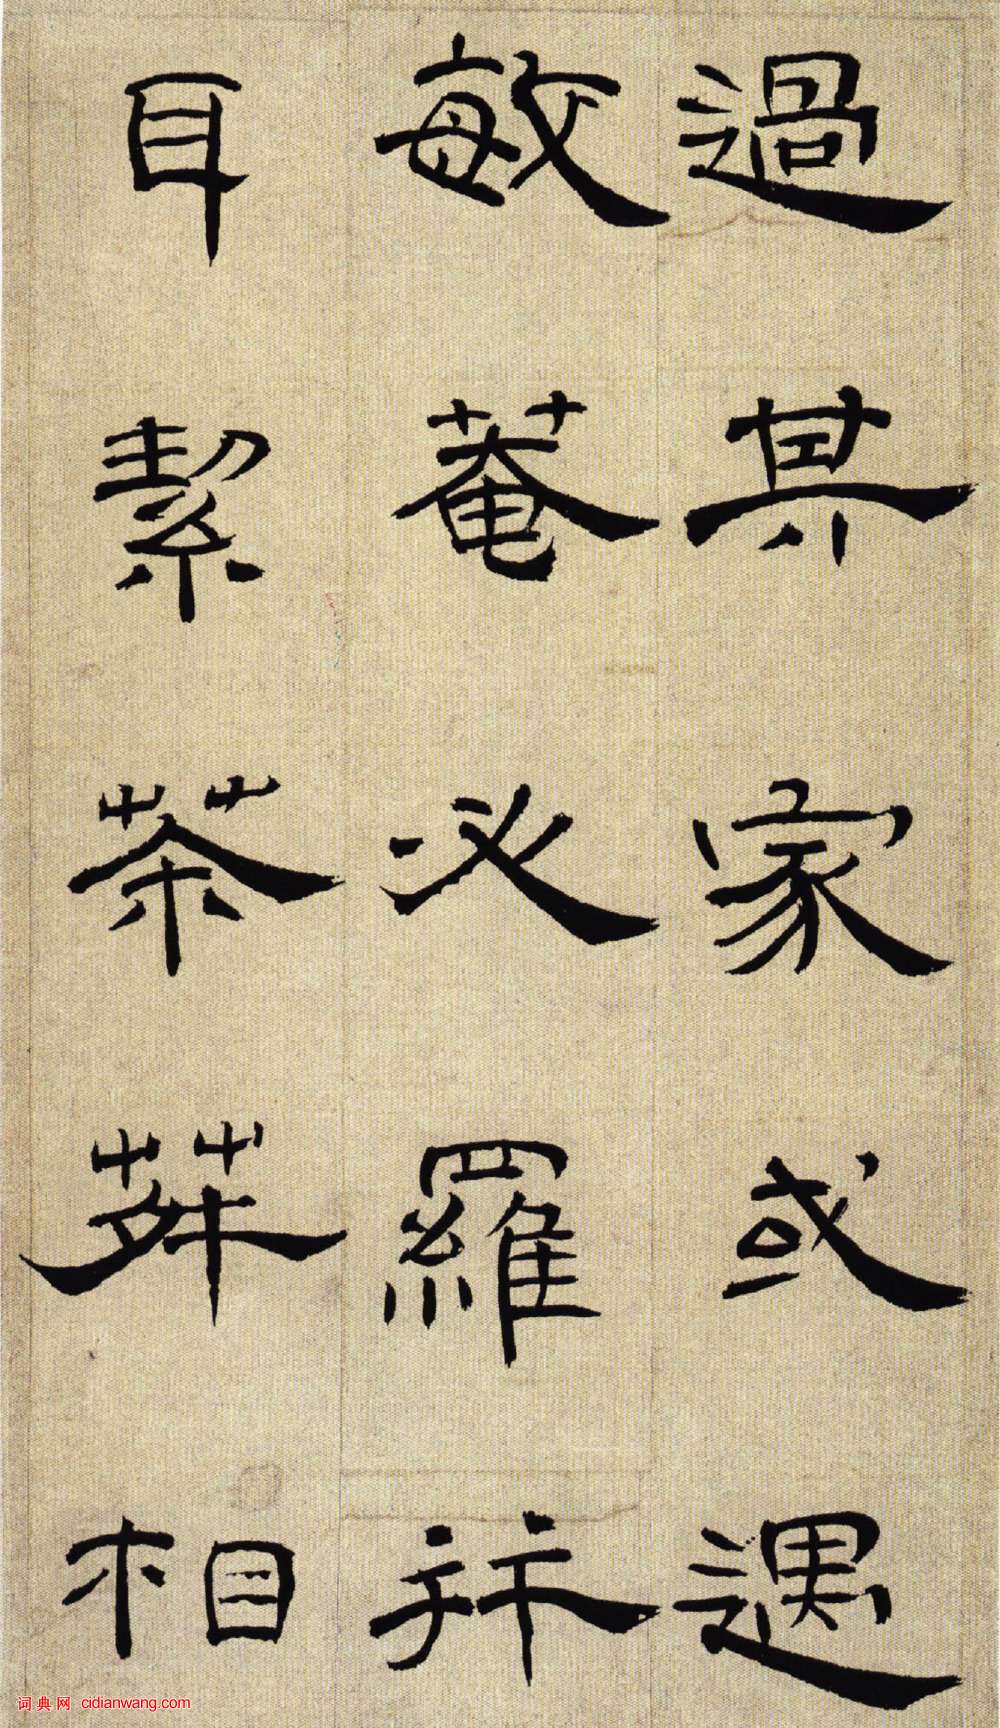 過其家或遇
敏菴必羅并
耳絜茶荈相
词典网 cidianwang.com